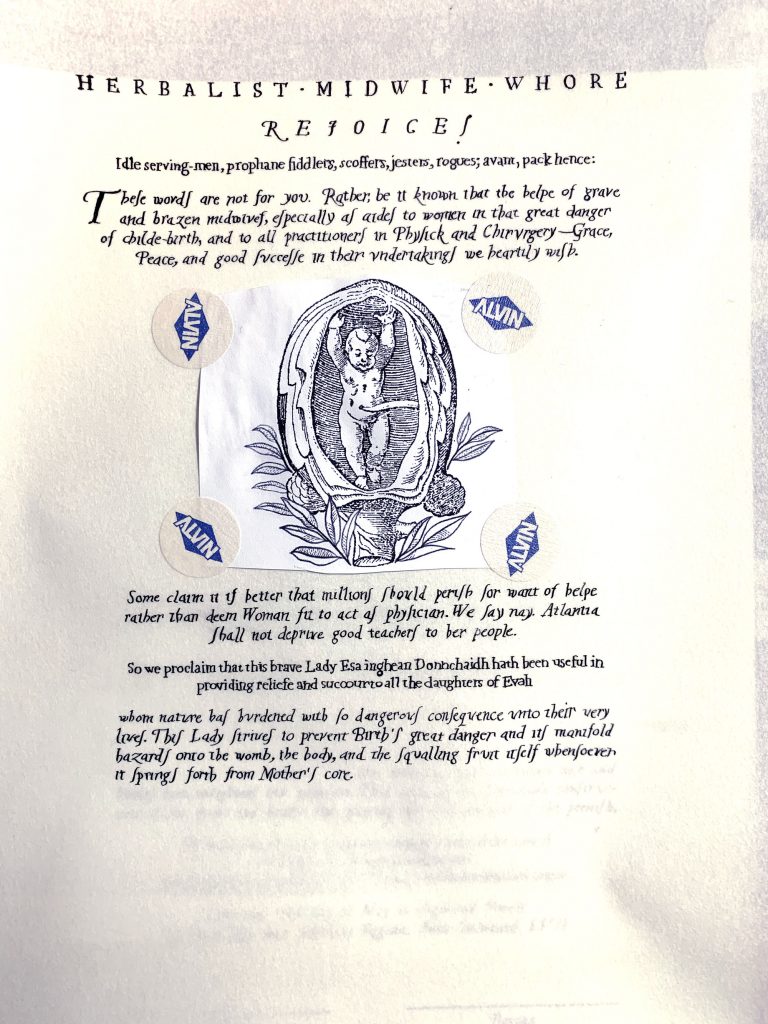 HERBALIST · MIDWIFE · WHORE
REJOICEſ
Idle serving-men, prophane fiddlers, scoffers, jesters, rogues; avant, pack hence:
Theſe wordſ are not for you. Rather, be it known that the helpe of grave
and brazen midwiveſ, eſpecially aſ aideſ to women in that great danger
of childe-birth, and to all practitionerſ in Phyſick and Chirvrgery—Grace,
Peace, and good ſucceſſe in their vndertakingſ we heartily wiſh.
ALVIN
ALVIN
ALVIN
ALVIN
Some claim it iſ better that millionſ ſhould periſh for want of helpe
rather than deem Woman fit to act aſ phyſician. We ſay nay. Atlantia
ſhall not deprive good teacherſ to her people.
So we proclaim that this brave Lady Esa inghean Donnchaidh hath been useful in
providing reliefe and succour to all the daughters of Evah
whom nature haſ bvrdened with ſo dangerovſ conſeqvence vnto their very
liveſ. Thiſ Lady ſtriveſ to prevent Birth'ſ great danger and itſ manifold
hazardſ onto the womb, the body, and the ſqualling fruit itſelf whenſoever
it ſpringſ forth from Mother'ſ core.